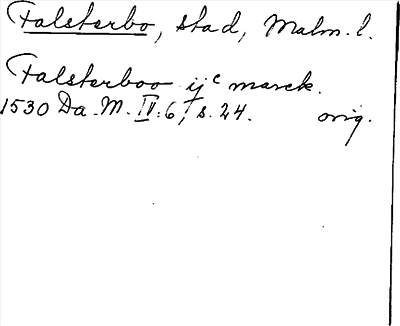 Falsterbo, stad, Malm. l.
Falsterboo ijᶜ marck.
1530 Da. M. IV: 6, s. 24. orig.